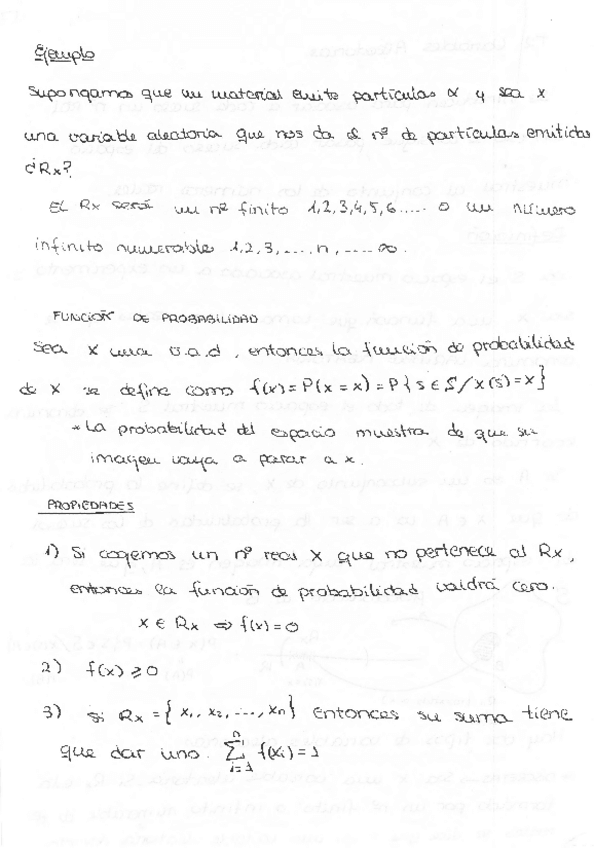 Ejemplo
Supongamos que un material emite partículas α y sea x
una variable aleatoria que nos da el nº de partículas emitidas
¿Rx?
EL Rx será un nº finito 1,2,3,4,5,6..... o un número
infinito numerable 1,2,3,....,n,....∞.
FUNCIÓN DE PROBABILIDAD
Sea x una v.a.d, entonces la función de probabilidad
de x se define como f(x)=P(x=x)=P{s∈S/x(s)=x}
*La probabilidad del espacio muestra de que su
imagen vaya a parar a x.
PROPIEDADES
1) Si cogemos un nº real x que no pertenece al Rx,
entonces la función de probabilidad valdrá cero.
x ∈ Rx ⇒ f(x)=0
2) f(x) ≥ 0
3) si Rx = {x₁, x₂, ..., xn} entonces su suma tiene
que dar uno. ∑ⁿᵢ₌₁ f(xi)=1